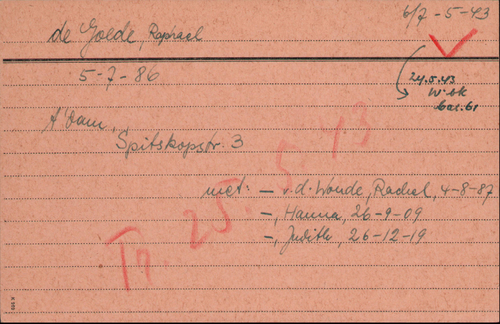 6/7-5-43
de Goede, Raphael
5-7-86
24.5.43
W.bk
bar. 61
A'dam
Spitskopstr. 3
met: - v.d. Woude, Rachel, 4-8-87
-, Hanna, 26-9-09
-, Judith, 26-12-19
Tr. 25.5.43